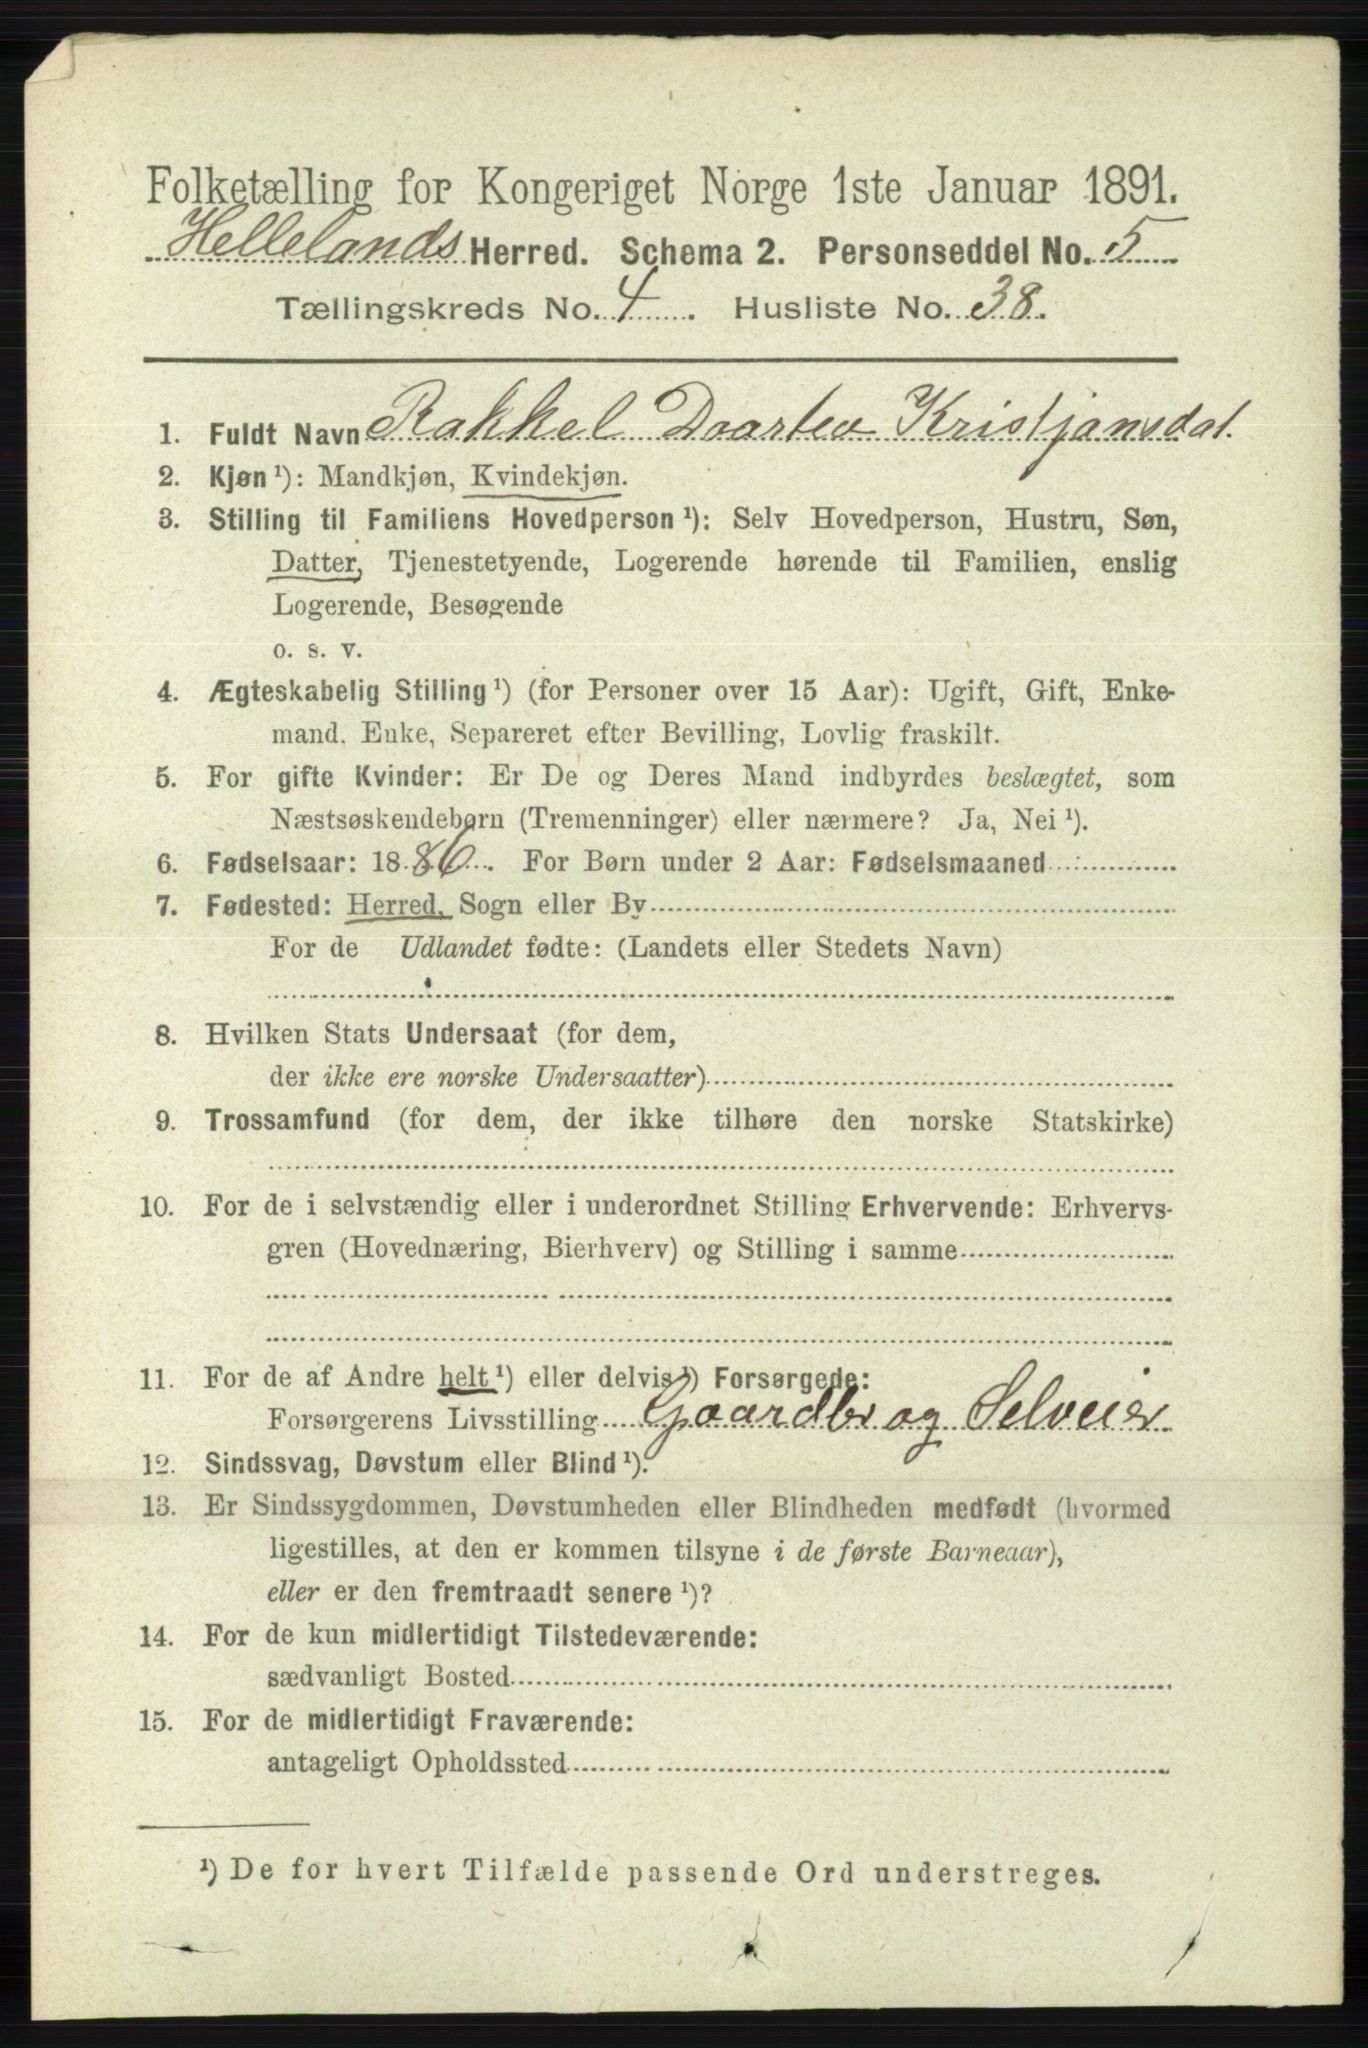 Folketælling for Kongeriget Norge 1ste Januar 1891.
Hellelands Herred. Schema 2. Personseddel No. 5
Tællingskreds No. 4. Husliste No. 38.
1. Fuldt Navn Rakkel Daartea Kristjansdat.
2. Kjøn ¹): Mandkjøn, Kvindekjøn.
3. Stilling til Familiens Hovedperson ¹): Selv Hovedperson, Hustru, Søn,
Datter, Tjenestetyende, Logerende hørende til Familien, enslig
Logerende, Besøgende
o. s. v.
4. Ægteskabelig Stilling ¹) (for Personer over 15 Aar): Ugift, Gift, Enke-
mand, Enke, Separeret efter Bevilling, Lovlig fraskilt.
5. For gifte Kvinder: Er De og Deres Mand indbyrdes beslægtet, som
Næstsøskendebørn (Tremenninger) eller nærmere? Ja, Nei ¹).
6. Fødselsaar: 1886. For Børn under 2 Aar: Fødselsmaaned
7. Fødested: Herred, Sogn eller By
For de Udlandet fødte: (Landets eller Stedets Navn)
8. Hvilken Stats Undersaat (for dem,
der ikke ere norske Undersaatter)
9. Trossamfund (for dem, der ikke tilhøre den norske Statskirke)
10. For de i selvstændig eller i underordnet Stilling Erhvervende: Erhvervs-
gren (Hovednæring, Bierhverv) og Stilling i samme
11. For de af Andre helt ¹) eller delvis ¹) Forsørgede:
Forsørgerens Livsstilling Gaardbr og Selveier
12. Sindssvag, Døvstum eller Blind ¹).
13. Er Sindssygdommen, Døvstumheden eller Blindheden medfødt (hvormed
ligestilles, at den er kommen tilsyne i de første Barneaar),
eller er den fremtraadt senere ¹)?
14. For de kun midlertidigt Tilstedeværende:
sædvanligt Bosted
15. For de midlertidigt Fraværende:
antageligt Opholdssted
¹) De for hvert Tilfælde passende Ord understreges.